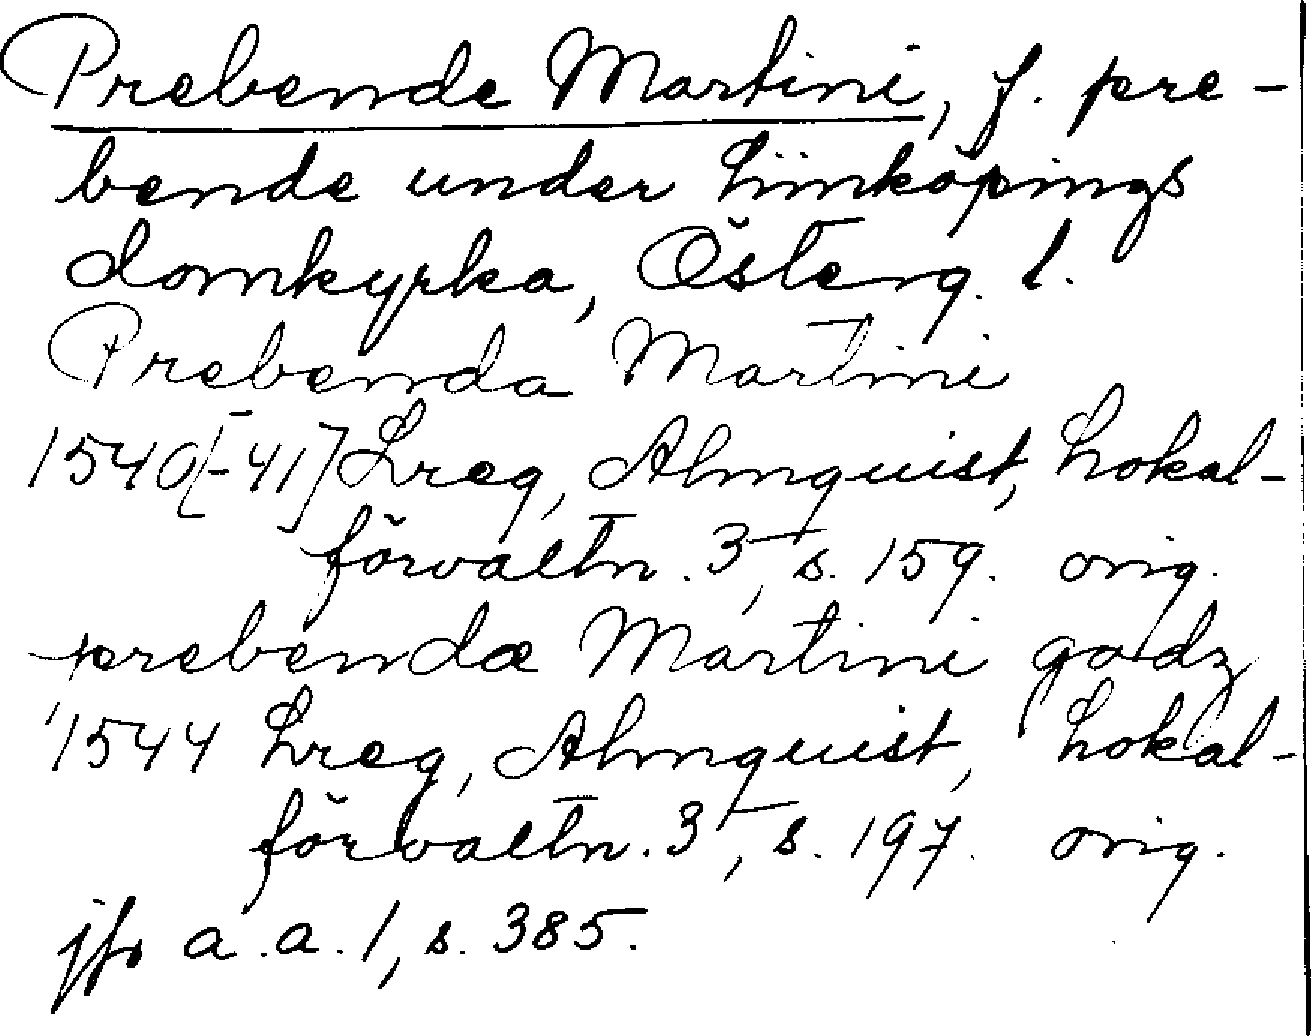 Prebende Martini, f. pre-
bende under Linköpings
domkyrka, Österg. l.
Prebenda Martini
1540[-41] Lreg, Almquist, Lokal-
förvaltn. 3, s. 159. orig.
prebendæ Martini godz
1544 Lreg, Almquist, Lokal-
förvaltn. 3, s. 197. orig.
jfr a.a. 1, s. 385.